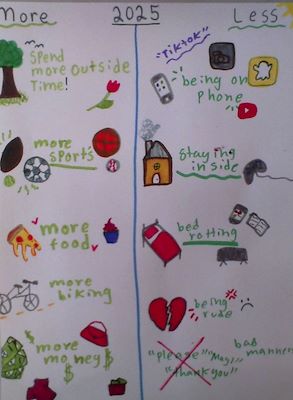 More
2025
Less
Spend
more outside
Time!
more
sports
more
food
more
biking
more
money
$
$
"Tiktok"
being on
phone
staying
inside
bed
rotting
being
rude
bad
manners
"please" "May I"
"thank you"